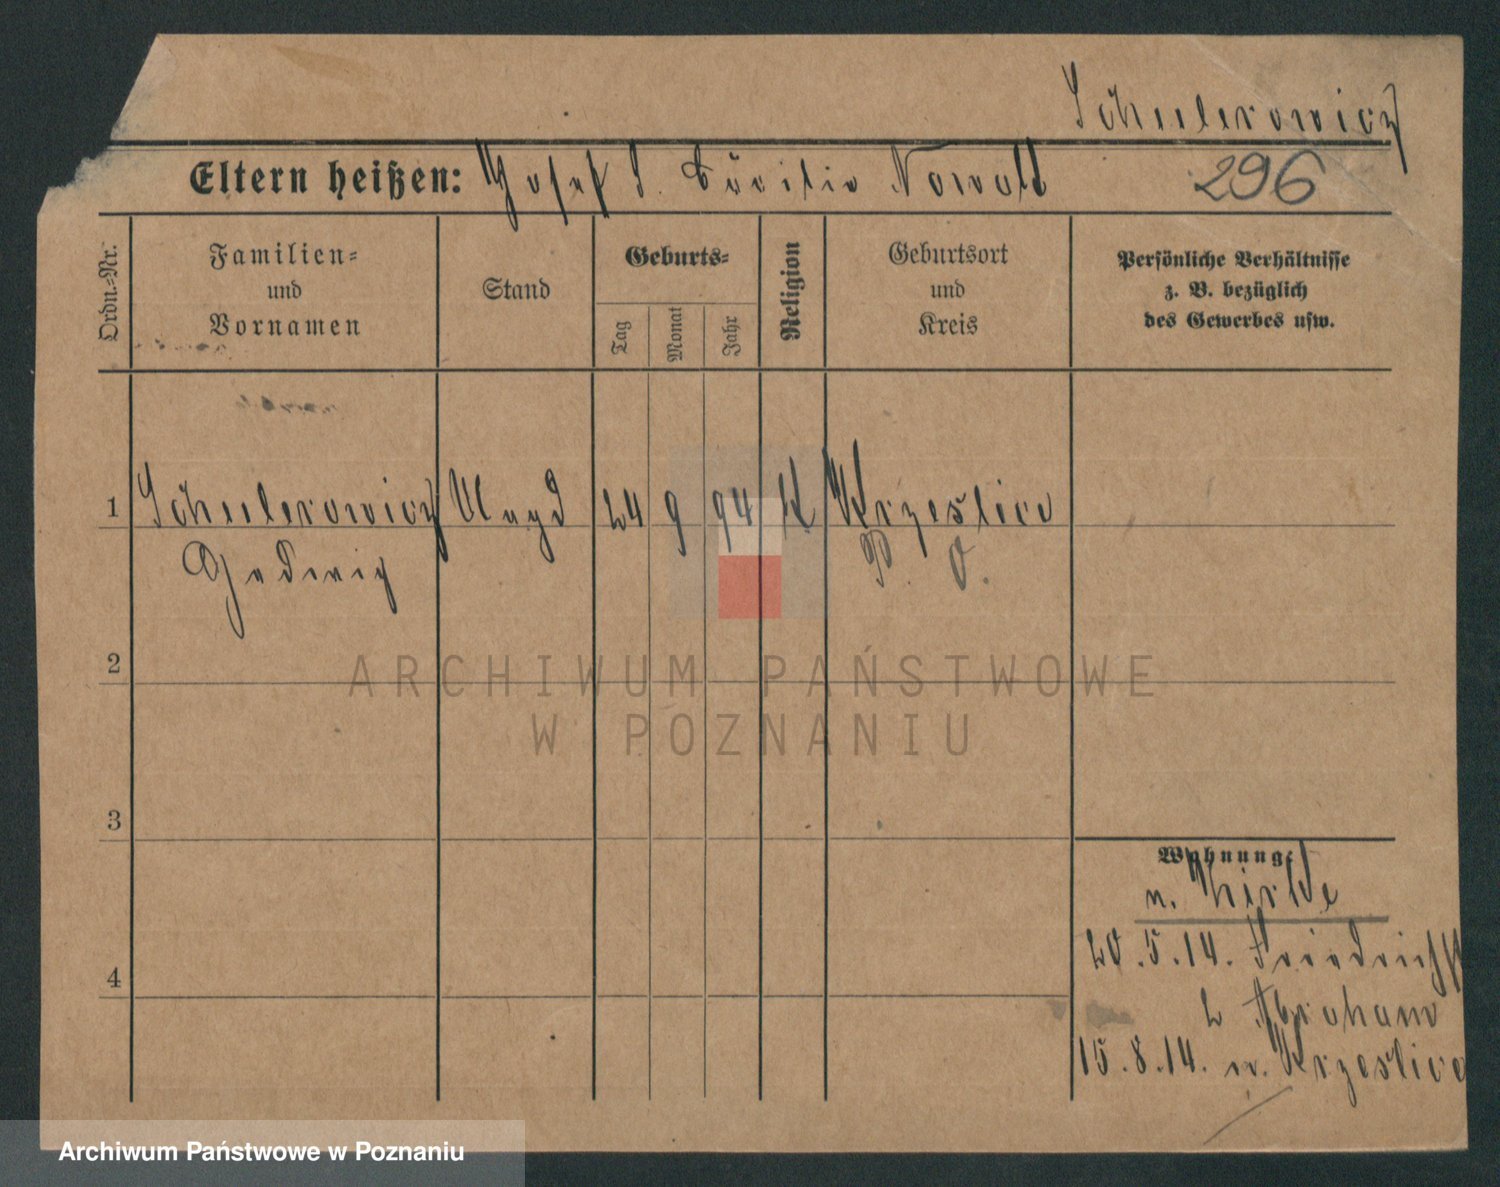 Schulerowicz
Eltern heißen: Josef S. Cäcilia Nowak
296
Ordn.-Nr.
Familien-
und
Vornamen
Stand
Geburts-
Tag
Monat
Jahr
Religion
Geburtsort
und
Kreis
Persönliche Verhältnisse
z. B. bezüglich
des Gewerbes usw.
1 Schulerowicz Magd 24 9 94 K Krzeslice
Hedwig P. O.
2
3
4
Wohnung:
n.
20.5.14. Friedrichstr
2 Abraham
15.8.14. n. Krzeslice
ARCHIWUM PAŃSTWOWE
W POZNANIU
Archiwum Państwowe w Poznaniu